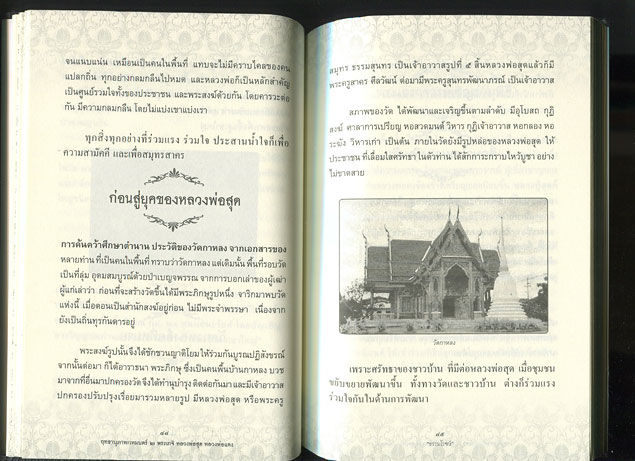 จนแนบแน่น เหมือนเป็นคนในพื้นที่ แทบจะไม่มีคราบไคลของคน
แปลกถิ่น ทุกอย่างกลมกลืนไปหมด และหลวงพ่อก็เป็นหลักสำคัญ
เป็นศูนย์รวมใจทั้งของประชาชน และพระสงฆ์ด้วยกัน โดยคารวะต่อ
กัน มีความกลมกลืน โดยไม่แบ่งเขาแบ่งเรา
ทุกสิ่งทุกอย่างที่ร่วมแรง ร่วมใจ ประสานน้ำใจก็เพื่อ
ความสามัคคี และเพื่อสมุทรสาคร
ก่อนสู่ยุคของหลวงพ่อสุด
การค้นคว้าศึกษาตำนาน ประวัติของวัดกาหลง จากเอกสารของ
หลายท่าน ที่เป็นคนในพื้นที่ ทราบว่าวัดกาหลง แต่เดิมนั้น พื้นที่รอบวัด
เป็นที่ลุ่ม อุดมสมบูรณ์ด้วยป่าเบญจพรรณ จากการบอกเล่าของผู้เฒ่า
ผู้แก่เล่าว่า ก่อนที่จะสร้างวัดขึ้นได้มีพระภิกษุรูปหนึ่ง จาริกมาพบวัด
แห่งนี้ เมื่อตอนเป็นสำนักสงฆ์อยู่ก่อน ไม่มีพระจำพรรษา เนื่องจาก
ยังเป็นถิ่นทุรกันดารอยู่
พระสงฆ์รูปนั้นจึงได้ชักชวนญาติโยมให้ร่วมกันบูรณปฏิสังขรณ์
จากนั้นต่อมา ก็ได้อาราธนา พระภิกษุ ซึ่งเป็นคนพื้นบ้านกาหลง บวช
มาจากที่อื่นมาปกครองวัด จึงได้ทำนุบำรุง ติดต่อกันมา และมีเจ้าอาวาส
ปกครองปรับปรุงเรื่อยมารวมหลายรูป มีหลวงพ่อสุด หรือพระครู
๔๔
สมุทร ธรรมสุนทร เป็นเจ้าอาวาสรูปที่ ๕ สิ้นหลวงพ่อสุดแล้วก็มี
พระครูสาคร ศีลวัฒน์ ต่อมามีพระครูสุนทรพัฒนาภรณ์ เป็นเจ้าอาวาส
สภาพของวัด ได้พัฒนาและเจริญขึ้นตามลำดับ มีอุโบสถ กุฏิ
สงฆ์ ศาลาการเปรียญ หอสวดมนต์ วิหาร กุฏิเจ้าอาวาส หอกลอง หอ
ระฆัง วิหารเก่า เป็นต้น ภายในวัดยังมีรูปหล่อของหลวงพ่อสุด ให้
ประชาชน ที่เลื่อมใสศรัทธา ในตัวท่าน ได้สักการะกราบไหว้บูชา อย่าง
ไม่ขาดสาย
วัดกาหลง
เพราะศรัทธาของชาวบ้าน ที่มีต่อหลวงพ่อสุด เมื่อชุมชน
ขยับขยายพัฒนาขึ้น ทั้งทางวัดและชาวบ้าน ต่างก็ร่วมแรง
ร่วมใจกันในด้านการพัฒนา
๔๕